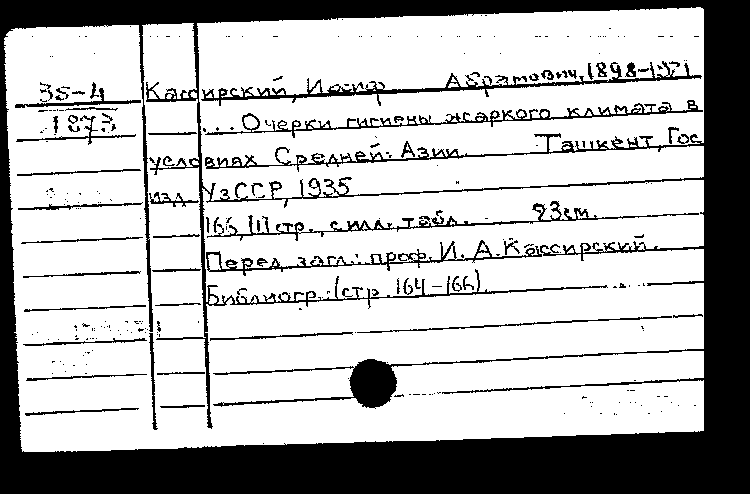 35-4 Кассирский, Иосиф Абрамович, 1898-1971
1873 ... Очерки гигиены жаркого климата в
условиях Средней Азии. Ташкент, Гос.
изд. УзССР, 1935
166, III стр., с илл., табл. 23 см.
Перед загл.: проф. И. А. Кассирский.
Библиогр.: (стр. 164-166).